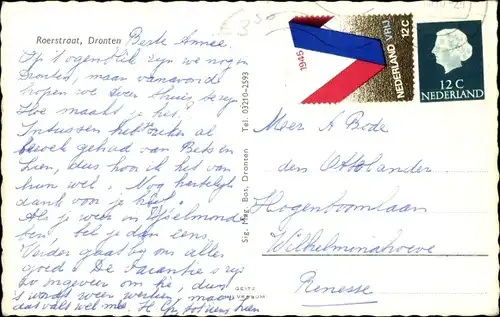 Roerstraat, Dronten
Beste Annee.
Op 't ogenblik zijn we nog in
Dronten, maar vanavond
hopen we weer thuis te zijn
Hoe maakt je het?
Intussen heb al
bezoek gehad van Bets en
Lien, dus hoor ik het van
hun wel. Nog hartelijk
dank voor je kaart.
Als je weer in IJselmonde
bent, bel je dan eens.
Verder gaat bij ons alles
goed. De vacantie's zijn
zo ongeveer om hè, dus
't wordt weer werken, maar
dat valt wel mee.
Sig. Mag. Bos, Dronten Tel. 03210-2593
1945
NEDERLAND VRIJ
12 C
12 C
NEDERLAND
Meer A Bode
den Ottolander
Hogenboomlaan
Wilhelminahoeve
Renesse